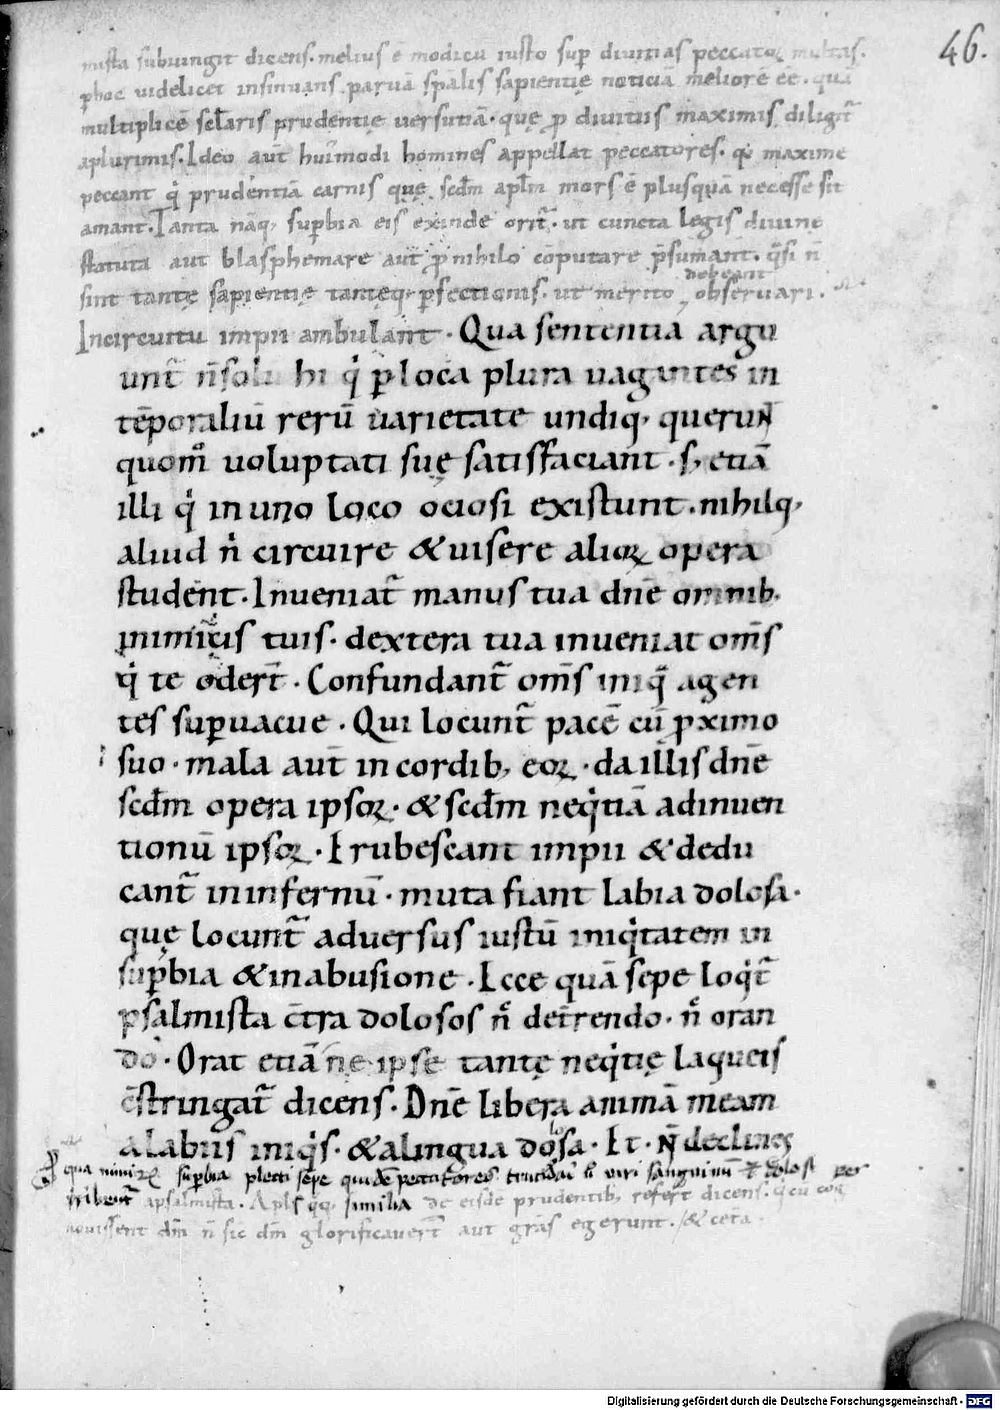 46.
mista subiungit dicens. melius ē modicū iusto sup̄ diuitias peccatoꝝ multas.
p̄ hoc videlicet insinuans paruā sp̄alis sapientię noticiā meliorē eē. quā
multiplicē sclaris prudentię uersutiā. quę p̄ diuitiis maximis diligit᷑
a plurimis. Ideo aut̄ hui᷒modi homines appellat peccatores. q᷑ maxime
peccant q̇ prudentiā carnis quę scdm̄ aplm̄ mors ē plusquā necesse sit
amant. Tanta nāq; sup̄bia eis exinde orit᷑. ut cuncta legis diuine
statuta aut blasphemare aut p̄ nihilo cōputare p̄sumant. q̄si n̄
debeant
sint tantę sapientię tantęq; p̄fectionis. ut merito obseruari.
In circuitu impii ambulant. Qua sententia argu
unt᷑ n̄ soli hi q̇ p̄ loca plura uagantes in
tēporaliū rerū uarietate undiq; querunt
quom̊ voluptati suę satisfaciant. s; etiā
illi q̇ in uno loco ociosi existunt. nihilq;
aliud n̊ circuire & uisere alioꝝ opera
student. Inueniat᷑ manus tua dn̄e omnib;
inimicis tuis. dextera tua inueniat om̄s
q̇ te oder̄t. Confundant᷑ om̄s iniq̄ agen
tes sup̄uacue. Qui locunt᷑ pacē cū p̄ximo
suo. mala aut̄ in cordib; eoꝝ. da illis dn̄e
scdm̄ opera ipsoꝝ. & scdm̄ neq̇tiā adinuen
tionū ipsoꝝ. Erubescant impii & dedu
cant᷑ in infernū. muta fiant labia dolosa.
quę locunt᷑ aduersus iustū iniq̇tatem in
sup̄bia & in abusione. Ecce quā sepe loq̇t᷑
psalmista c̄tra dolosos n̊ det̄rendo. n̊ oran
do. Orat etiā ne ipse tantę neq̇tię laqueis
c̄stringat᷑ dicens. Dn̄e libera animā meam
a labiis iniq̇s. & a lingua dolosa. Et. Ne declines
qua nimirū sup̄bia plecti sepe quidē peccatores uiri sanguinū & dolosi
a psalmista. Apl̄s q̄q; similia de eisdē prudentib; refert dicens. q̇ cū cog
nouissent dm̄ n̄ sic dm̄ glorificauer̄t aut grās egerunt. & ceta.
Digitalisierung gefördert durch die Deutsche Forschungsgemeinschaft - DFG